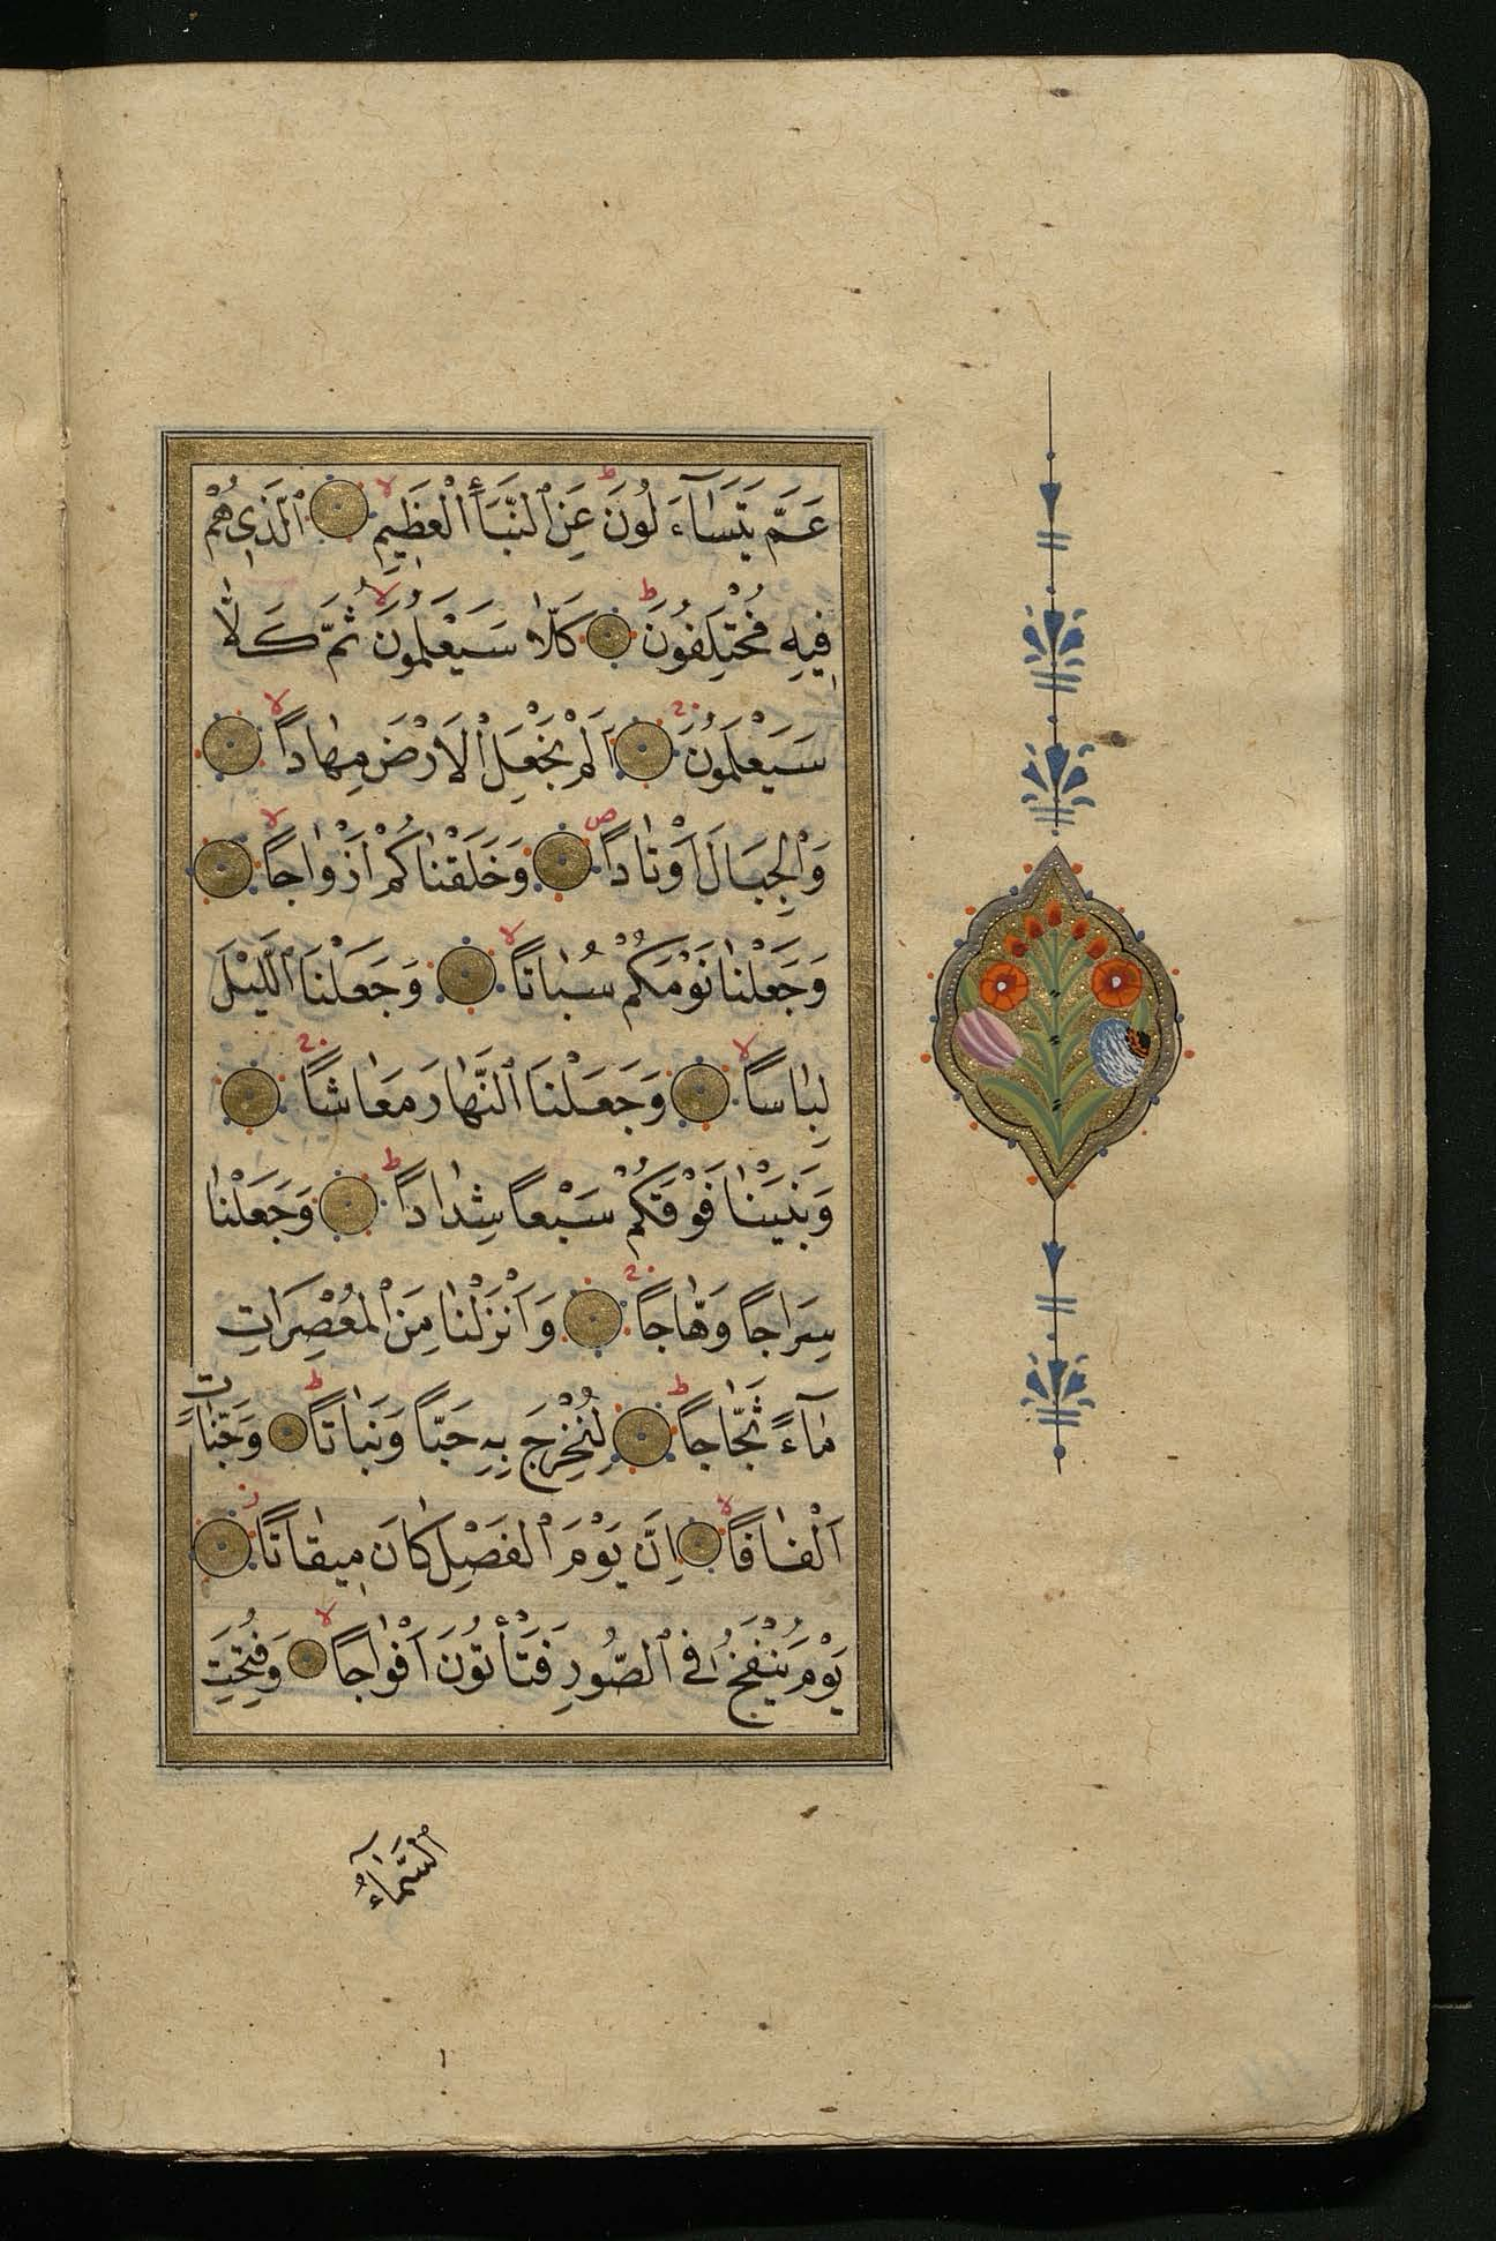 عَمَّ يَتَسَاۤءَلُونَ ط عَنِ ٱلنَّبَأِ ٱلْعَظِيمِ لا ٱلَّذِي هُمْ
فِيهِ مُخْتَلِفُونَ ط كَلَّا سَيَعْلَمُونَ لا ثُمَّ كَلَّا
سَيَعْلَمُونَ اَلَمْ نَجْعَلِ ٱلْاَرْضَ مِهَادًا لا
وَٱلْجِبَالَ اَوْتَادًا ص وَخَلَقْنَاكُمْ اَزْوَاجًا لا
وَجَعَلْنَا نَوْمَكُمْ سُبَاتًا لا وَجَعَلْنَا ٱلَّيْلَ
لِبَاسًا لا وَجَعَلْنَا ٱلنَّهَارَ مَعَاشًا
وَبَنَيْنَا فَوْقَكُمْ سَبْعًا شِدَادًا ط وَجَعَلْنَا
سِرَاجًا وَهَّاجًا وَاَنْزَلْنَا مِنَ ٱلْمُعْصِرَاتِ
مَاۤءً ثَجَّاجًا ط لِنُخْرِجَ بِهِ حَبًّا وَنَبَاتًا ط وَجَنَّاتٍ
اَلْفَافًا لا اِنَّ يَوْمَ ٱلْفَصْلِ كَانَ مِيقَاتًا
يَوْمَ يُنْفَخُ فِي ٱلصُّورِ فَتَأْتُونَ اَفْوَاجًا لا وَفُتِحَتِ
ٱلسَّمَاۤءُ
١